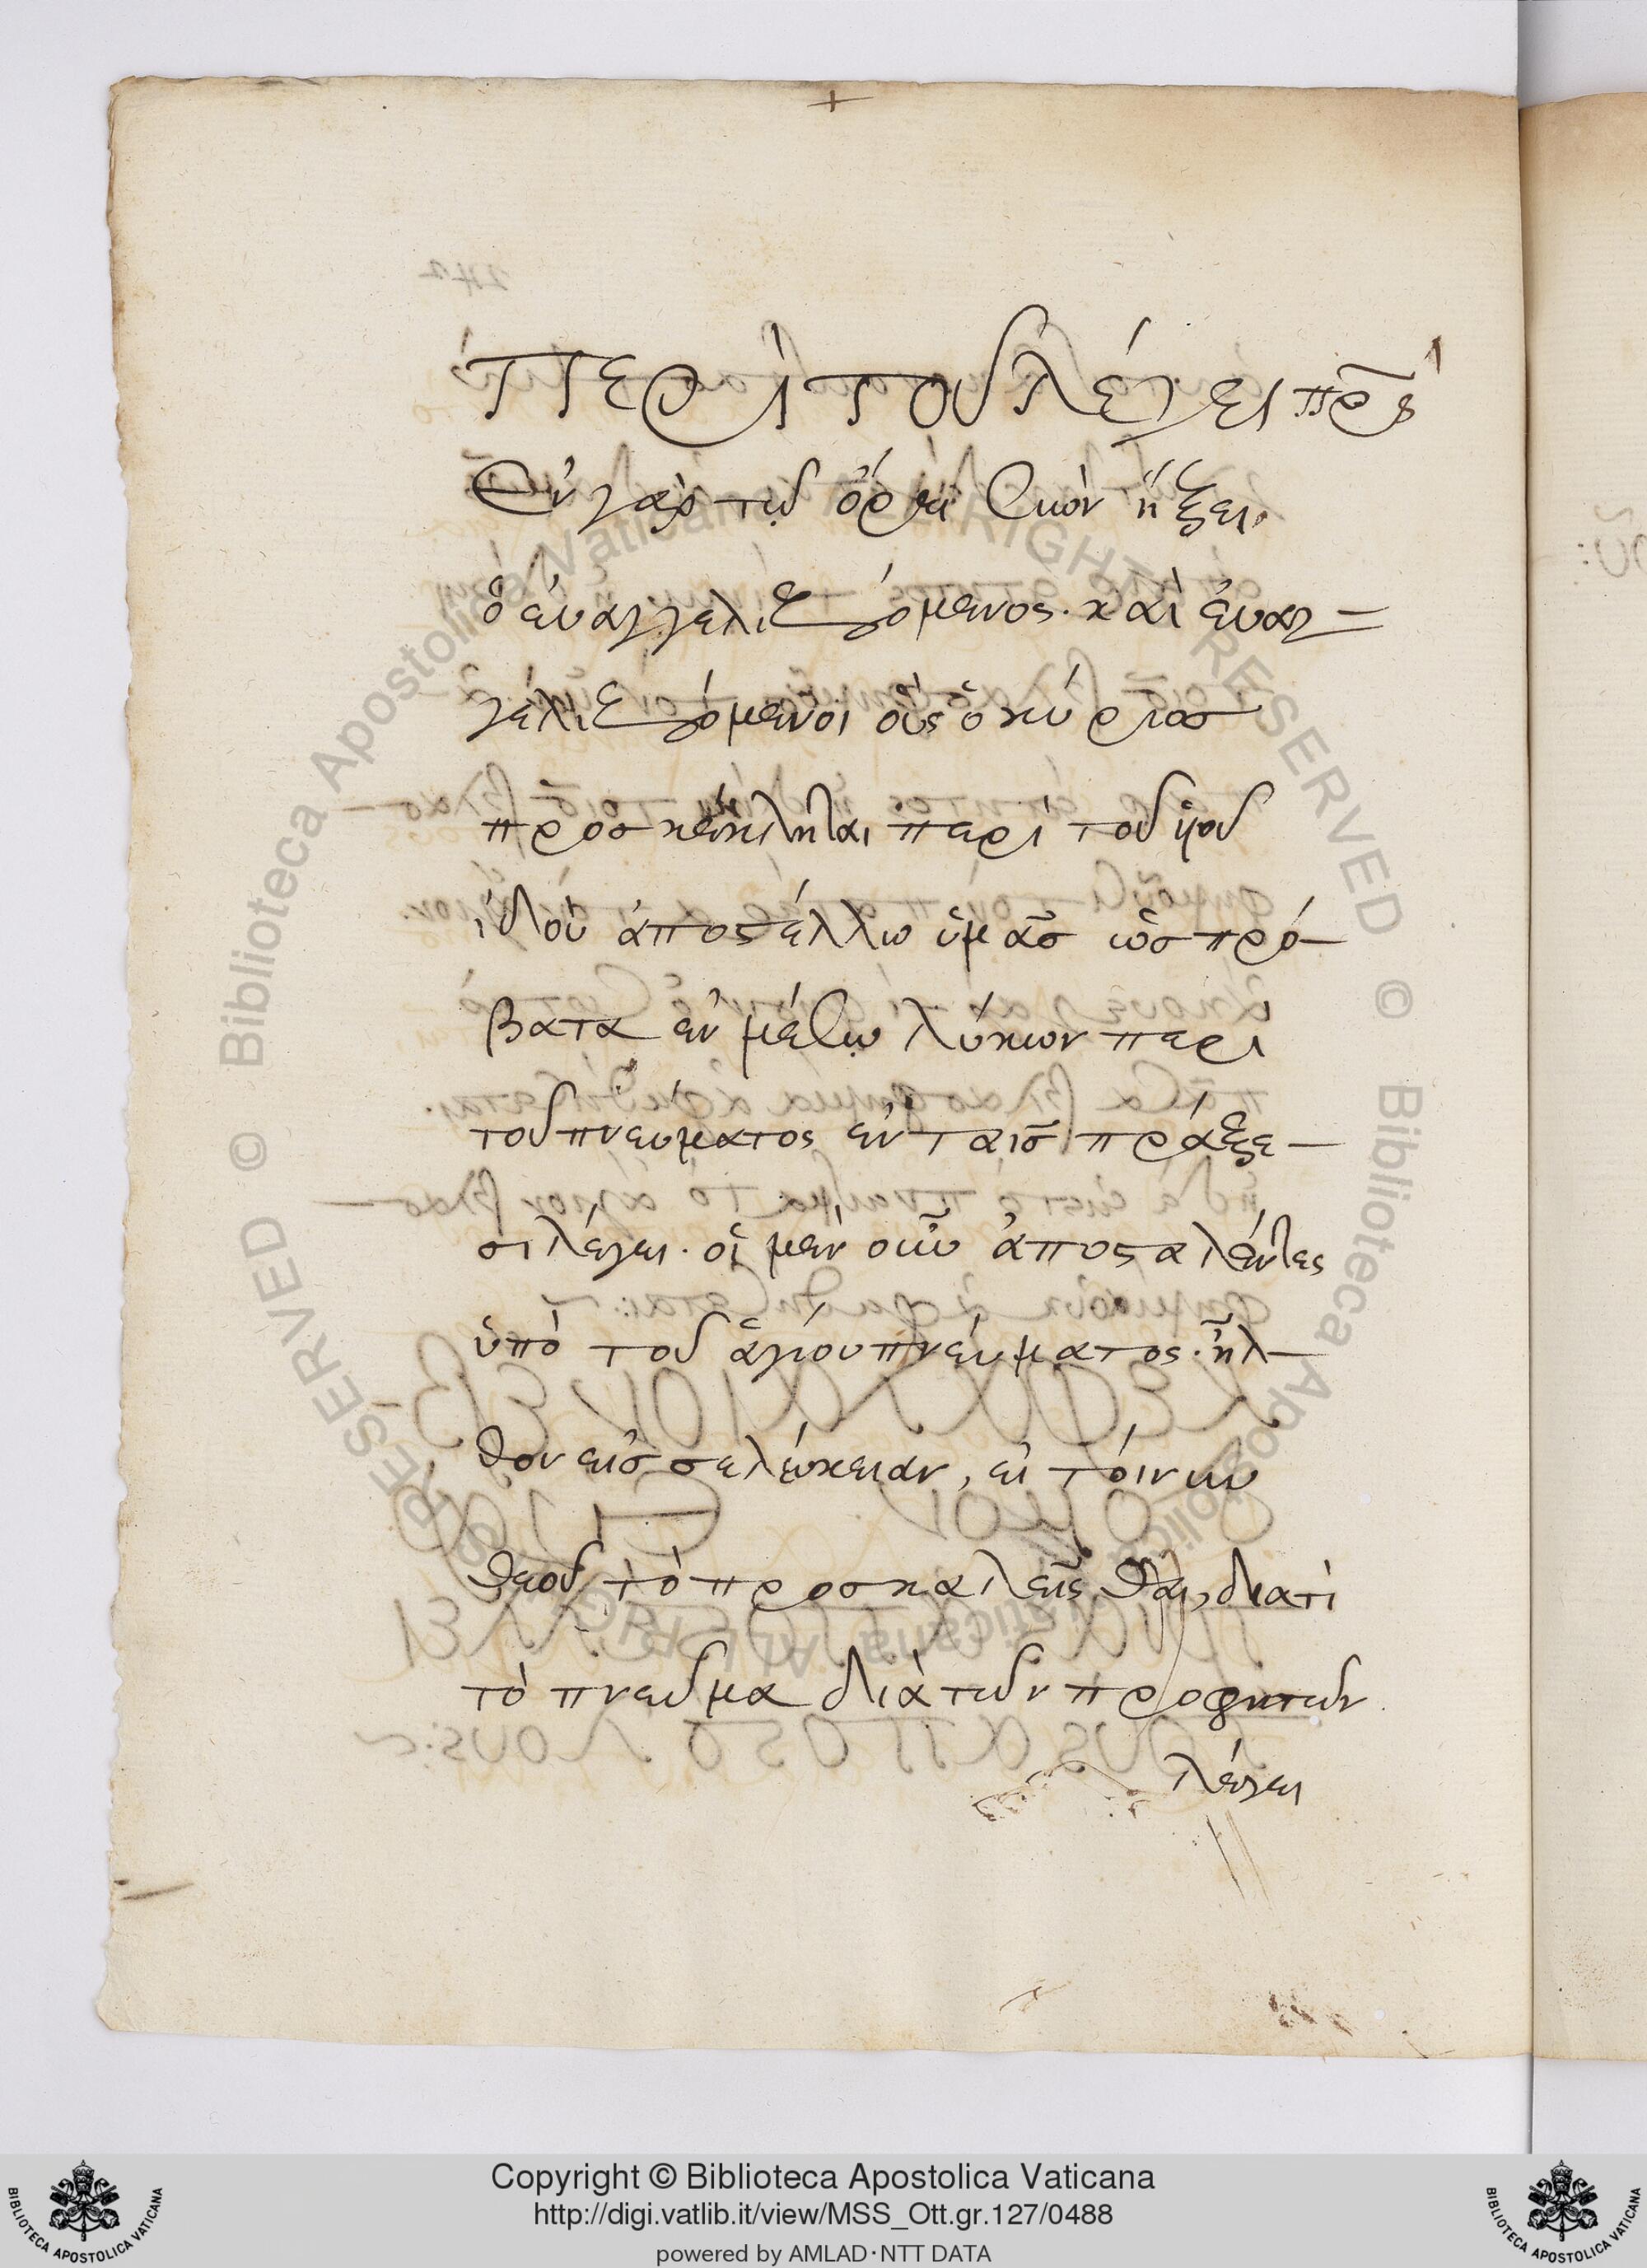 +
ΠΕΡΙ ΤΟΥ λέγει πρς
Ἐν γὰρ τῶ ὄρει Σιὼν ἥξει.
ὁ ἐυαγγελιζόμενος. καὶ ἐυαγ–
γελιζόμενοι οὓς ὁ κύριοσ
προσκέκληται περὶ τοῦ ϋἱοῦ
ἰδοὺ ἀποστέλλω ὑμᾶσ ὡσ πρό–
βατα ἐν μέσω λύκων περὶ
τοῦ πνευματος ἐν ταισ πράξε–
σι λέγει. οἱ μὲν οῦν ἀποσταλέντες
ὑπὸ τοῦ ἁγίου πνέυματος. ἦλ–
θον εἰσ σελέυκειαν, εἰ τόινυν
θεοῦ τὸ προσκαλεῖσθαι, διατὶ
τὸ πνεῦμα διὰ τῶν προφητῶν
λέγει
© Biblioteca Apostolica Vaticana ALL RIGHTS RESERVED
Copyright © Biblioteca Apostolica Vaticana
http://digi.vatlib.it/view/MSS_Ott.gr.127/0488
powered by AMLAD·NTT DATA
BIBLIOTECA APOSTOLICA VATICANA
BIBLIOTECA APOSTOLICA VATICANA